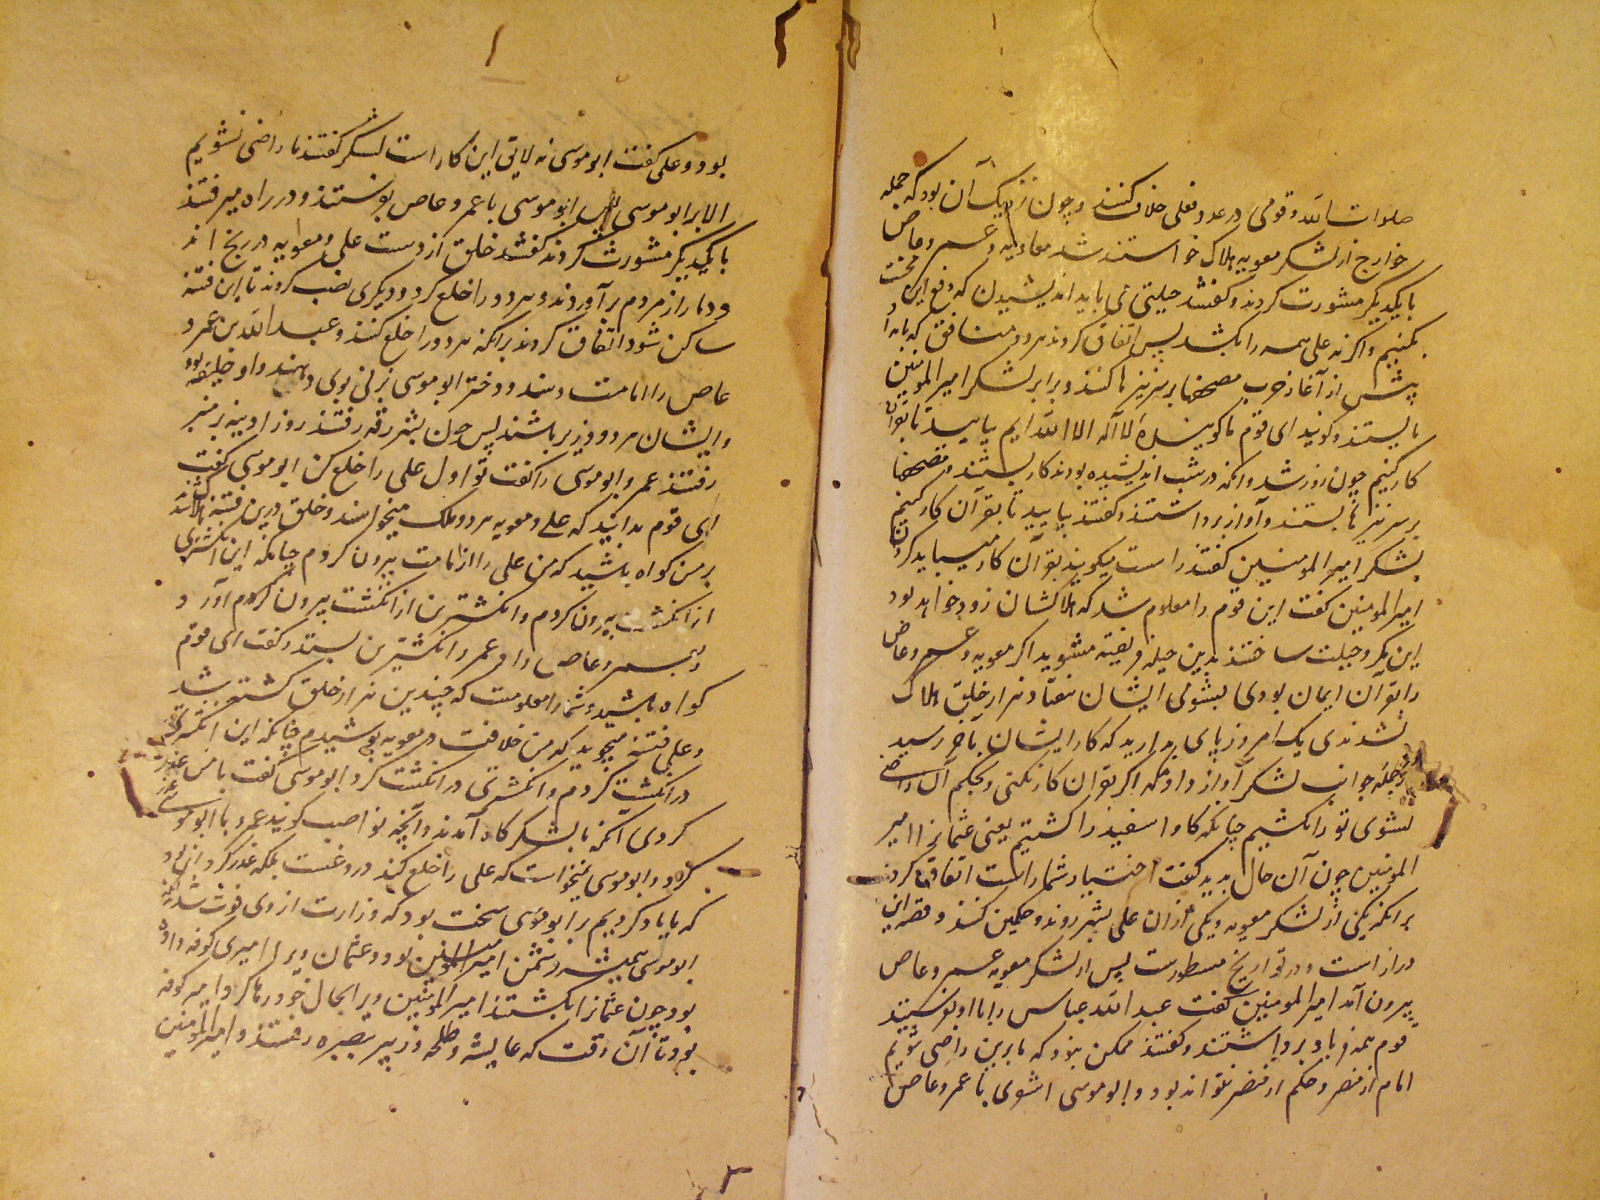 صلوات الله و قومی در عدد فعلی خلاف کنند و چون نزدیک آن بود که جمله
خوارج از لشکر معویه هلاک خواستند شد معاویه و عمرو عاص
با یکدیگر مشورت کردند و گفتند حیلتی می باید اندیشیدن که دفع این محنت
بکنیم و اگر نه علی همه را بکشد پس اتفاق کردند هر دو منافق که بامداد
پیش از آغاز حرب مصحفها بر سر نیزها کنند و برابر لشکر امیر المومنین
بایستند و گویند ای قوم ما گوینده لا اله الا الله ایم بیایید تا بقران
کار کنیم چون روز شد و آنکه در شب اندیشیده بودند کار بستند و مصحفها
بر سر نیزها بستند و آواز برداشتند و گفتند بیایید تا بقرآن کار کنیم
لشکر امیر المومنین گفتند راست میگویند بقرآن کار میباید کردن
امیر المومنین گفت این قوم را معلوم شد که هلاکشان زود خواهد بود
این مکر و حیلت ساختند بدین حیله فریفته مشوید اگر معویه و عمرو عاص
را بقرآن ایمان بودی بشومی ایشان هفتاد هزار خلق هلاک
نشدندی یک امروز پای بدارید که کار ایشان بآخر رسید
از جمله جوانب لشکر آواز داد که اگر بقران کار نکنی و بحکم آن راضی
نشوی تو را بکشیم چنانکه کاو اسفید را کشتیم یعنی عثمانرا امیر
المومنین چون آن حال بدید گفت اختیار شما راست اتفاق کردند
برانکه یکی از لشکر معویه و یکی از ان علی بشهر روند و حکمین کنند و قصه این
دراز است و در تواریخ مسطورست پس از لشکر معویه عمرو عاص
بیرون آمد امیر المومنین گفت عبد الله عباس را با او بفرستید
قوم همه فریاد برداشتند و گفتند ممکن نبود که ما بدین راضی شویم
امام از مضر و حکم از مضر نتواند بود و ابو موسی اشعری با عمرو عاص
بود و علی گفت ابو موسی نه لایق این کار است لشکر گفتند ما راضی نشویم
الا بر ابو موسی پس ابو موسی با عمرو عاص بفرستند و در راه میرفتند
با یکدیگر مشورت کردند گفتند خلق از دست علی و معویه در رنج اند
و دمار از مردم برآوردند و هر دو را خلع کرد و دیگری نصب کردند تا این فتنه
ساکن شود اتفاق کردند برانکه هر دو را خلع کنند و عبد الله بن عمرو
عاص را امامت دهند و دختر ابو موسی بزنی بوی دهند و او خلیفه بود
و ایشان هر دو وزیر باشند پس چون بشهر رفتند روز ادینه بر منبر
رفتند عمرو ابو موسی را گفت تو اول علی را خلع کن ابو موسی گفت
ای قوم بدانید که علی و معویه هر دو ملک میخواهند و خلق درین فتنه هلاک شد
بر من گواه باشید که من علی را از امامت بیرون کردم چنانکه این انگشتری
از انگشت بیرون کردم و انگشترین از انگشت بیرون کردم آورد و
بعمرو عاص داد عمرو انگشترین بستد و گفت ای قوم
گواه باشید و شما را معلومست که چندین هزار خلق کشته شد
و علی فتنه میجوید که من خلافت در معویه پوشیدم چنانکه این انگشتری
در انگشت کردم و انگشتری در انگشت کرد ابو موسی گفت با من غدر
کردی آنگه با لشکرگاه آمدند و آنچه نواصب گویند عمرو با ابو موسی غدر
کرد و ابو موسی نمیخواست که علی را خلع کند دروغست بلکه غدر کرد
که یاد کردیم بر ابو موسی سخت بود که وزارت از وی فوت شد
ابو موسی همیشه دشمن امیر المومنین بود و عثمان ویرا امیری کوفه داده
بود چون عثمانرا بکشتند امیر المومنین ویرا بحال خود رها کرد امیر کوفه
بود تا آن وقت که عایشه و طلحه و زبیر ببصره رفتند و امیر المومنین